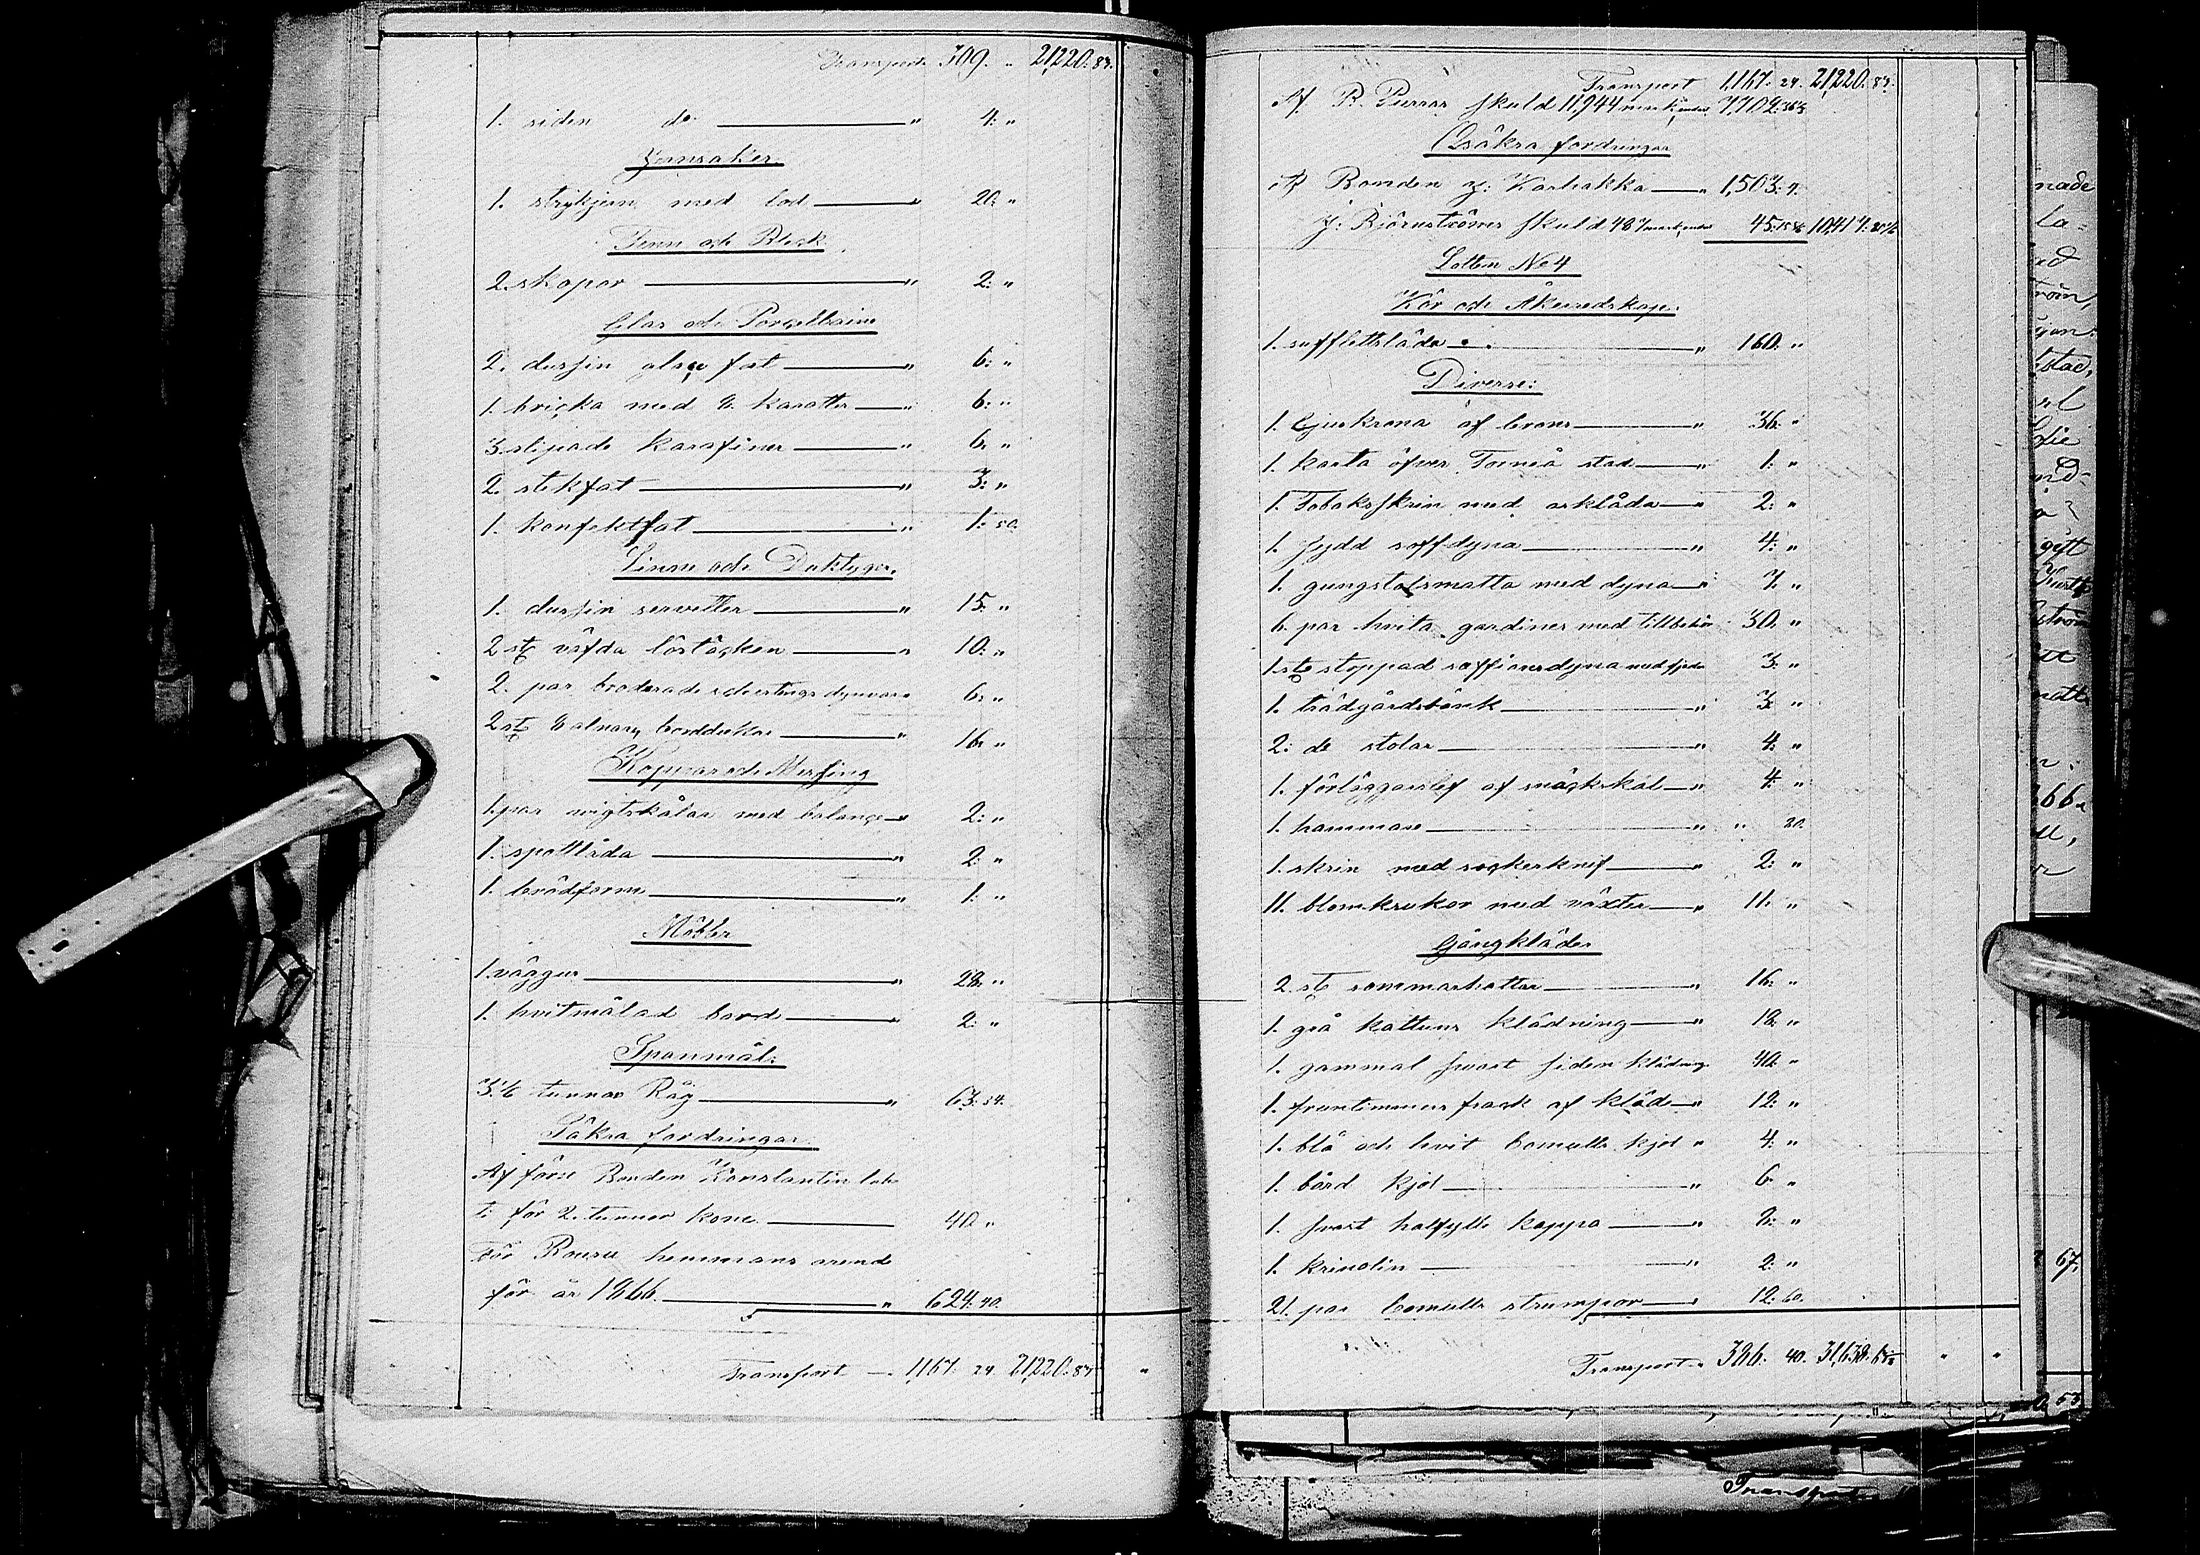 Transport 309. " 21,220. 84.
1. siden do " 4: "
Jernsaker
1. strykjern med lod " 20: "
Tenn och Bleck
2. skopor " 2: "
Glas och Porcellaine
2. dussin glas fat " 6: "
1. bricka med 2. karotter " 6: "
3. slipade karafiner " 6: "
2. stekfat " 3: "
1. konfektfat " 1: 50.
Linne och Duktyger.
1. dussin servetter " 15: "
2 st väfda löstäcken " 10: "
2. par broderade dynvar " 6: "
2 st alnars borddukar " 16: "
Koppar och Messing
1. par vigtskålar med balance " 2: "
1. spottlåda " 2: "
1. brödform " 1: "
Möbler
1. vaggur " 28: "
1. hvitmålad bord " 2: "
Spanmål:
3 1/6 tunnor Råg " 63: 34.
Säkra fordringar.
Af förre Bonden Konstantin
för 2. tunnor korn 40. "
För hemmans arende
för år 1866. " 624: 40.
Transport 1,167. 24. 21,220: 84.
Transport 1,167. 24. 21,220: 84.
Af P. Purras skuld 11,944 mark 7,702:
Osäkra fordringar
Af Bonden Karhakka " 1,503: 9.
J: Björnströms skuld 487 mark 45: 10,417:
Lotten No 4
Kör och Åkeredskap.
1. suffletsläda " 160. "
Diverse:
1. ljuskrona af brons " 36. "
1. karta öfver Torneå stad " 1: "
1. Tobaksskrin med asklåda " 2: "
1. sydd soffdyna " 4: "
1. gungstolsmatta med dyna " 7. "
6. par hvita gardiner med tillbehör 30. "
1. st stoppad saffiansdyna med 3. "
1. trädgårdsbänk " 3. "
2: do stolar " 4: "
1. förläggarslef af snäckskal " 4. "
1. hammare " " 20.
1. skrin med sockerknif " 2: "
11. blomkrukor med växter " 11. "
Gångkläder
2. st sommarhattar " 16. "
1. grå kattuns klädning " 18. "
1. gammal svart siden klädning 40. "
1. fruntimmers frack af kläde " 12: "
1. blå och hvit bomulls kjol " 4: "
1. bård kjol " 6. "
1. svart halfylle kappa " 8: "
1. krinolin " 2: "
21. par bomulls strumpor " 12: 60.
Transport " 386. 40. 31,638. " "
Transport